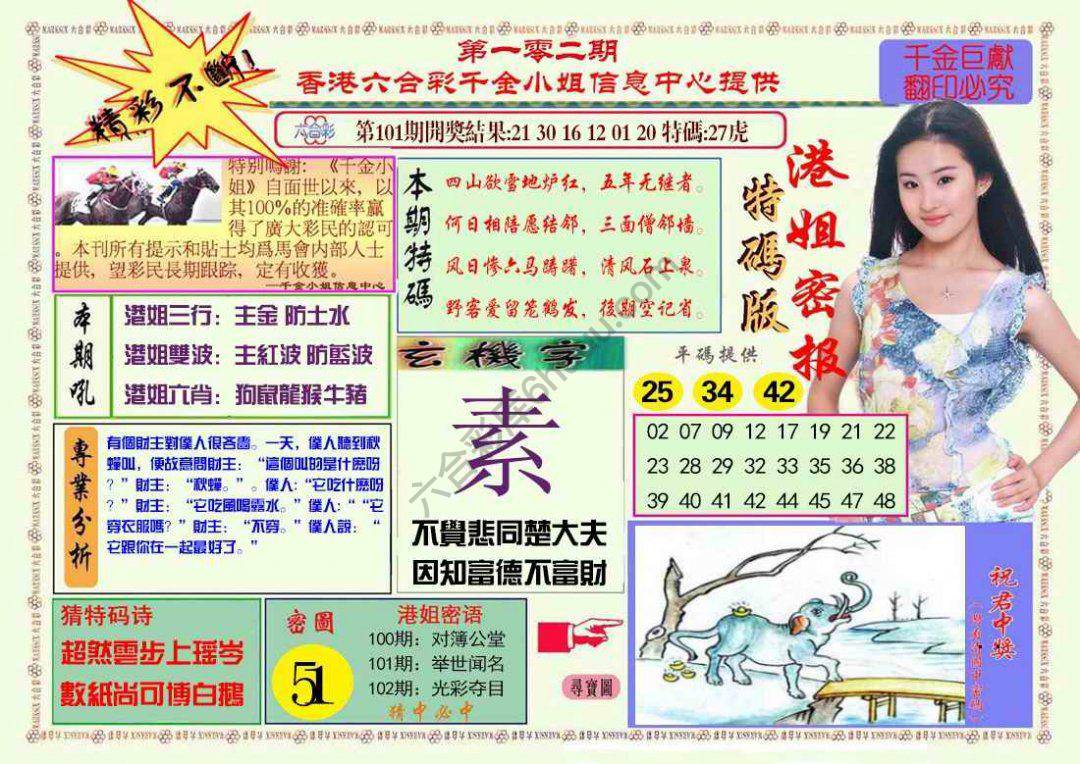 精彩不斷!
第一零二期
香港六合彩千金小姐信息中心提供
千金巨獻
翻印必究
六合彩 第101期開獎結果:21 30 16 12 01 20 特碼:27虎
特别鳴謝: 《千金小
姐》自面世以來, 以
其100%的准確率贏
得了廣大彩民的認可
。本刊所有提示和貼士均爲馬會内部人士
提供, 望彩民長期跟踪, 定有收獲。
—千金小姐信息中心
本期特碼
四山欲雪地炉红, 五年无继者。
何日相陪愿结邻, 三面僧邻墙。
风日惨六马踌躇, 清风石上泉。
野客爱留笼鹤发, 後期空记省。
特碼版
港姐密报
本期吼
港姐三行: 主金 防土水
港姐雙波: 主紅波 防藍波
港姐六肖: 狗鼠龍猴牛豬
玄機字
素
不覺悲同楚大夫
因知富德不富財
平碼提供
25 34 42
02 07 09 12 17 19 21 22
23 28 29 32 33 35 36 38
39 40 41 42 44 45 47 48
專業分析
有個財主對僕人很吝嗇。一天, 僕人聽到秋
蟬叫, 便故意問財主: “這個叫的是什麽呀
? ”財主: “秋蟬。”。僕人:“它吃什麽呀
? ”財主: “它吃風喝露水。”僕人:“ “它
穿衣服嗎? ”財主: “不穿。”僕人說: “
它跟你在一起最好了。”
猜特码诗
超然雲步上瑶岑
數紙尚可博白鵝
密圖
51
港姐密语
100期: 对簿公堂
101期: 举世闻名
102期: 光彩夺目
猜中必中
尋寶圖
祝君中獎
六合彩库6hctu.com